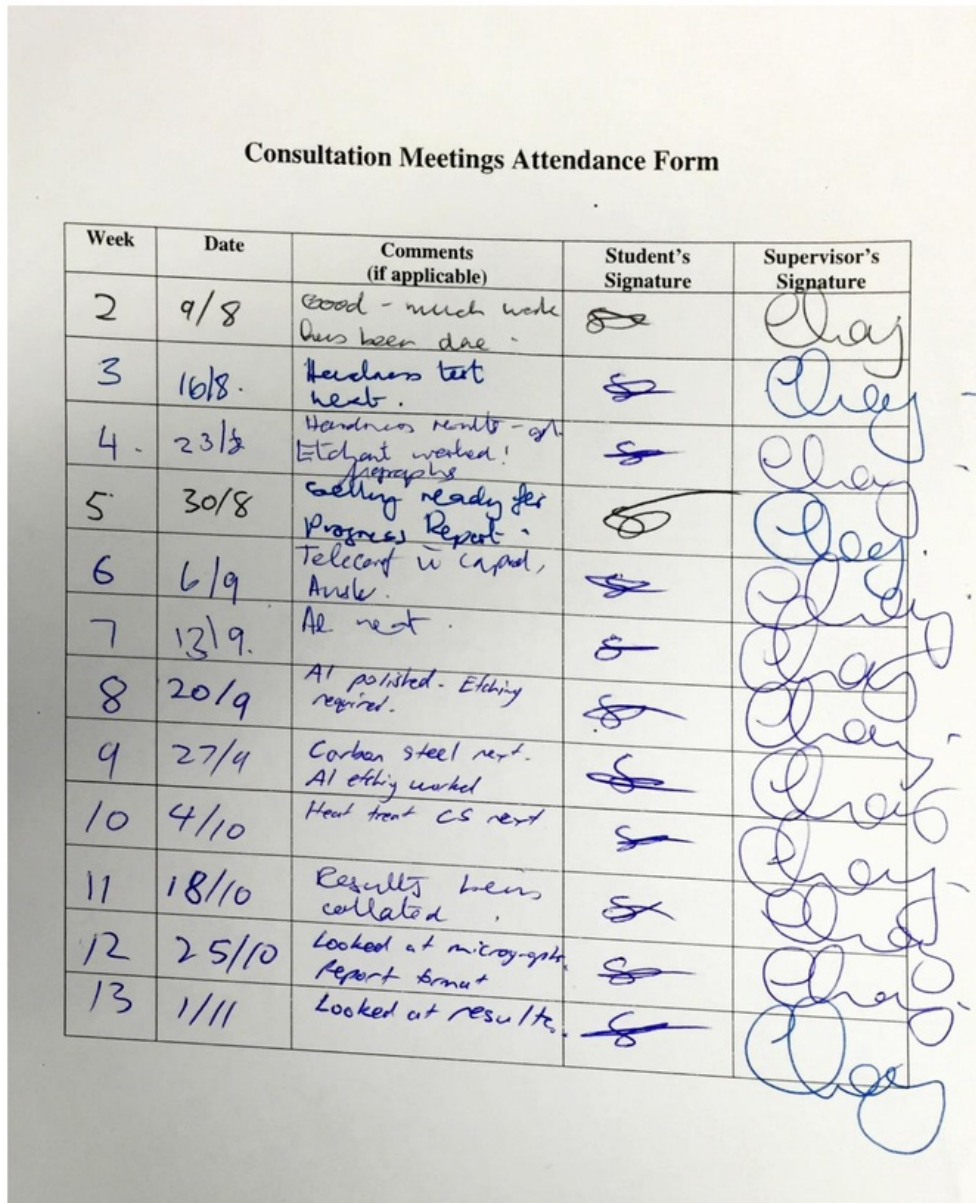 Consultation Meetings Attendance Form
Week Date Comments (if applicable) Student's Signature Supervisor's Signature
2 9/8 Good - much work
has been done.
3 16/8. Hardness test
next.
4. 23/8 Hardness results -
Etchant worked!
5 30/8 Getting ready for
Progress Report.
6 6/9 Teleconf
7 13/9. Al next.
8 20/9 Al polished - Etching
required.
9 27/9 Carbon steel next.
Al etching worked
10 4/10 Heat treat CS next
11 18/10 Results being
collated.
12 25/10 Looked at micrographs.
Report format
13 1/11 Looked at results.